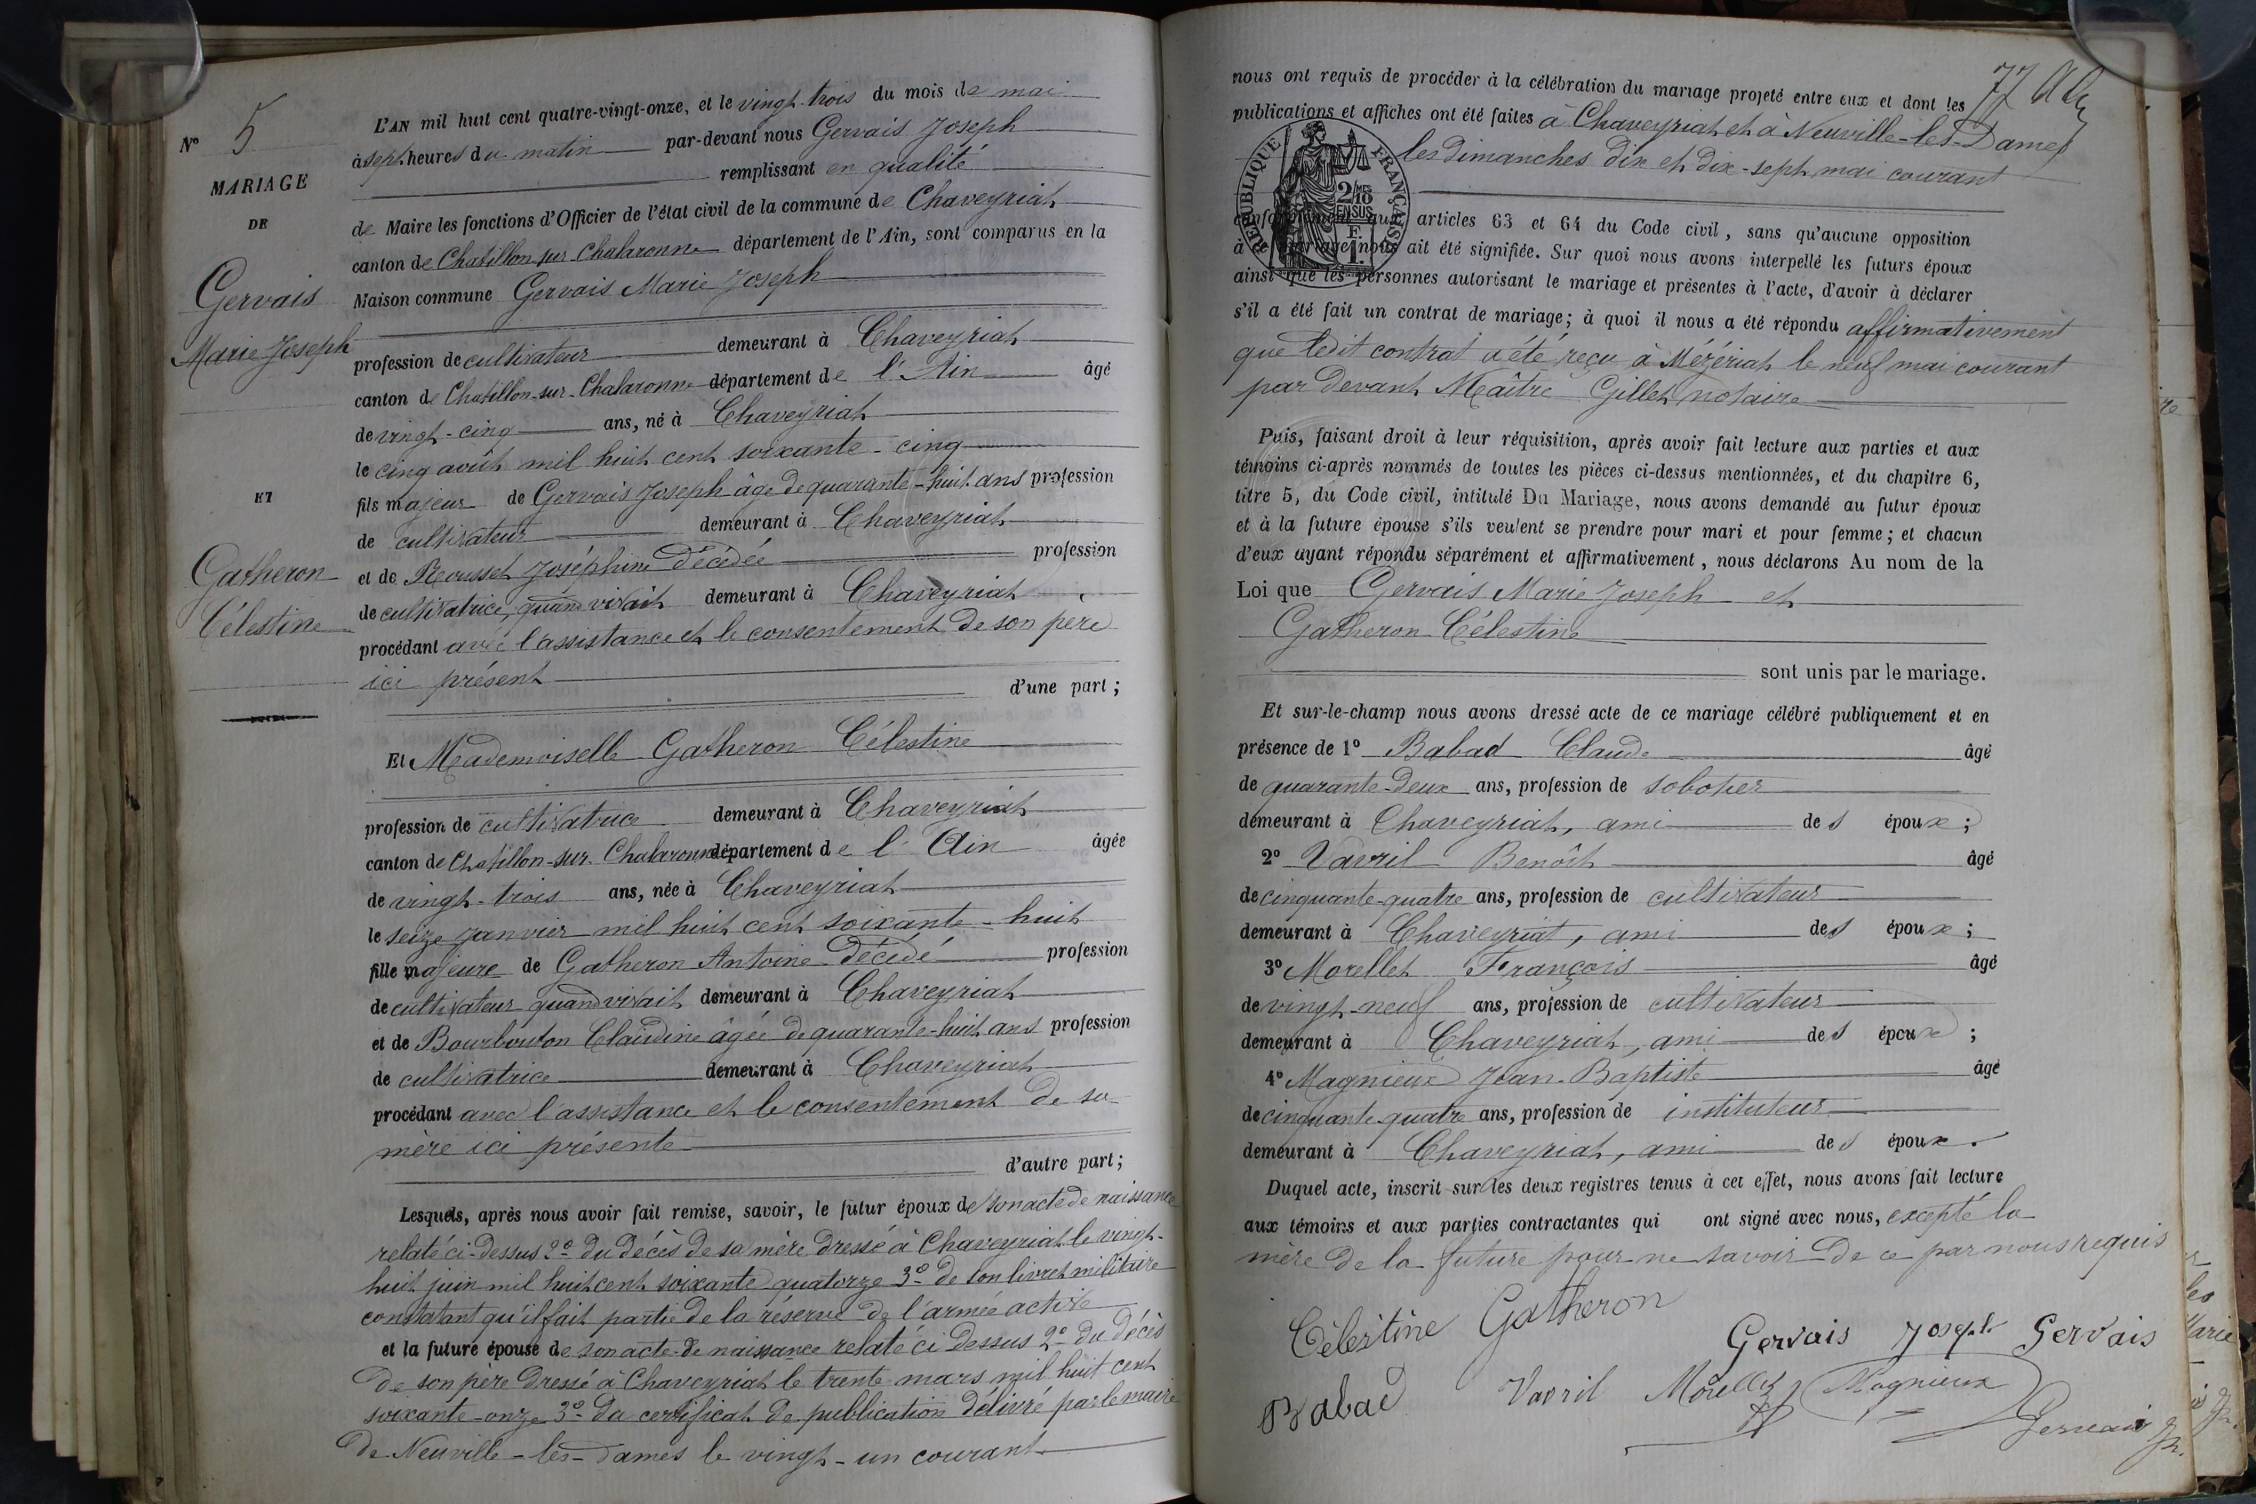 N° 5
MARIAGE
DE
Gervais
Marie Joseph
ET
Gatheron
Célestine
L'AN mil huit cent quatre-vingt-onze, et le vingt-trois du mois de mai
à sept heures du matin par-devant nous Gervais Joseph
remplissant en qualité
de Maire les fonctions d'Officier de l'état civil de la commune de Chaveyriat
canton de Chatillon-sur-Chalaronne département de l'Ain, sont comparus en la
Maison commune Gervais Marie Joseph
profession de cultivateur demeurant à Chaveyriat
canton de Chatillon-sur-Chalaronne département de l'Ain âgé
de vingt-cinq ans, né à Chaveyriat
le cinq août mil huit cent soixante-cinq
fils majeur de Gervais Joseph âgé de quarante-huit ans profession
de cultivateur demeurant à Chaveyriat
et de Rousset Joséphine décédée profession
de cultivatrice, quand vivait demeurant à Chaveyriat
procédant avec l'assistance et le consentement de son père
ici présent
d'une part;
Et Mademoiselle Gatheron Célestine
profession de cultivatrice demeurant à Chaveyriat
canton de Chatillon-sur-Chalaronne département de l'Ain âgée
de vingt-trois ans, née à Chaveyriat
le seize janvier mil huit cent soixante-huit
fille majeure de Gatheron Antoine décédé profession
de cultivateur quand vivait demeurant à Chaveyriat
et de Bourbouton Claudine âgée de quarante-huit ans profession
de cultivatrice demeurant à Chaveyriat
procédant avec l'assistance et le consentement de sa
mère ici présente
d'autre part;
Lesquels, après nous avoir fait remise, savoir, le futur époux de son acte de naissance
relaté ci-dessus 2° du décès de sa mère dressé à Chaveyriat le vingt-
huit juin mil huit cent soixante quatorze 3° de son livret militaire
constatant qu'il fait partie de la réserve de l'armée active
et la future épouse de son acte de naissance relaté ci dessus 2° du décès
de son père dressé à Chaveyriat le trente mars mil huit cent
soixante-onze 3° du certificat de publication délivré par le maire
de Neuville-les-Dames le vingt-un courant
77
nous ont requis de procéder à la célébration du mariage projeté entre eux et dont les
publications et affiches ont été faites à Chaveyriat et à Neuville-les-Dames
les dimanches dix et dix-sept mai courant
RÉPUBLIQUE FRANÇAISE
2/10
EN SUS
F.
1.
conformément aux articles 63 et 64 du Code civil, sans qu'aucune opposition
à mariage nous ait été signifiée. Sur quoi nous avons interpellé les futurs époux
ainsi que les personnes autorisant le mariage et présentes à l'acte, d'avoir à déclarer
s'il a été fait un contrat de mariage; à quoi il nous a été répondu affirmativement
que ledit contrat a été reçu à Mézériat le neuf mai courant
par devant Maître Gillet notaire
Puis, faisant droit à leur réquisition, après avoir fait lecture aux parties et aux
témoins ci-après nommés de toutes les pièces ci-dessus mentionnées, et du chapitre 6,
titre 5, du Code civil, intitulé Du Mariage, nous avons demandé au futur époux
et à la future épouse s'ils veulent se prendre pour mari et pour femme; et chacun
d'eux ayant répondu séparément et affirmativement, nous déclarons Au nom de la
Loi que Gervais Marie Joseph et
Gatheron Célestine
sont unis par le mariage.
Et sur-le-champ nous avons dressé acte de ce mariage célébré publiquement et en
présence de 1° Babad Claude âgé
de quarante-deux ans, profession de sabotier
demeurant à Chaveyriat, ami des époux;
2° Vavril Benoît âgé
de cinquante-quatre ans, profession de cultivateur
demeurant à Chaveyriat, ami des époux;
3° Morellet François âgé
de vingt-neuf ans, profession de cultivateur
demeurant à Chaveyriat, ami des époux;
4° Magnieux Jean-Baptiste âgé
de cinquante quatre ans, profession de instituteur
demeurant à Chaveyriat, ami des époux.
Duquel acte, inscrit sur les deux registres tenus à cet effet, nous avons fait lecture
aux témoins et aux parties contractantes qui ont signé avec nous, excepté la
mère de la future pour ne savoir de ce par nous requis
Célestine Gatheron
Gervais Joseph Gervais
Babad Vavril Morellet Magnieux
Gervais